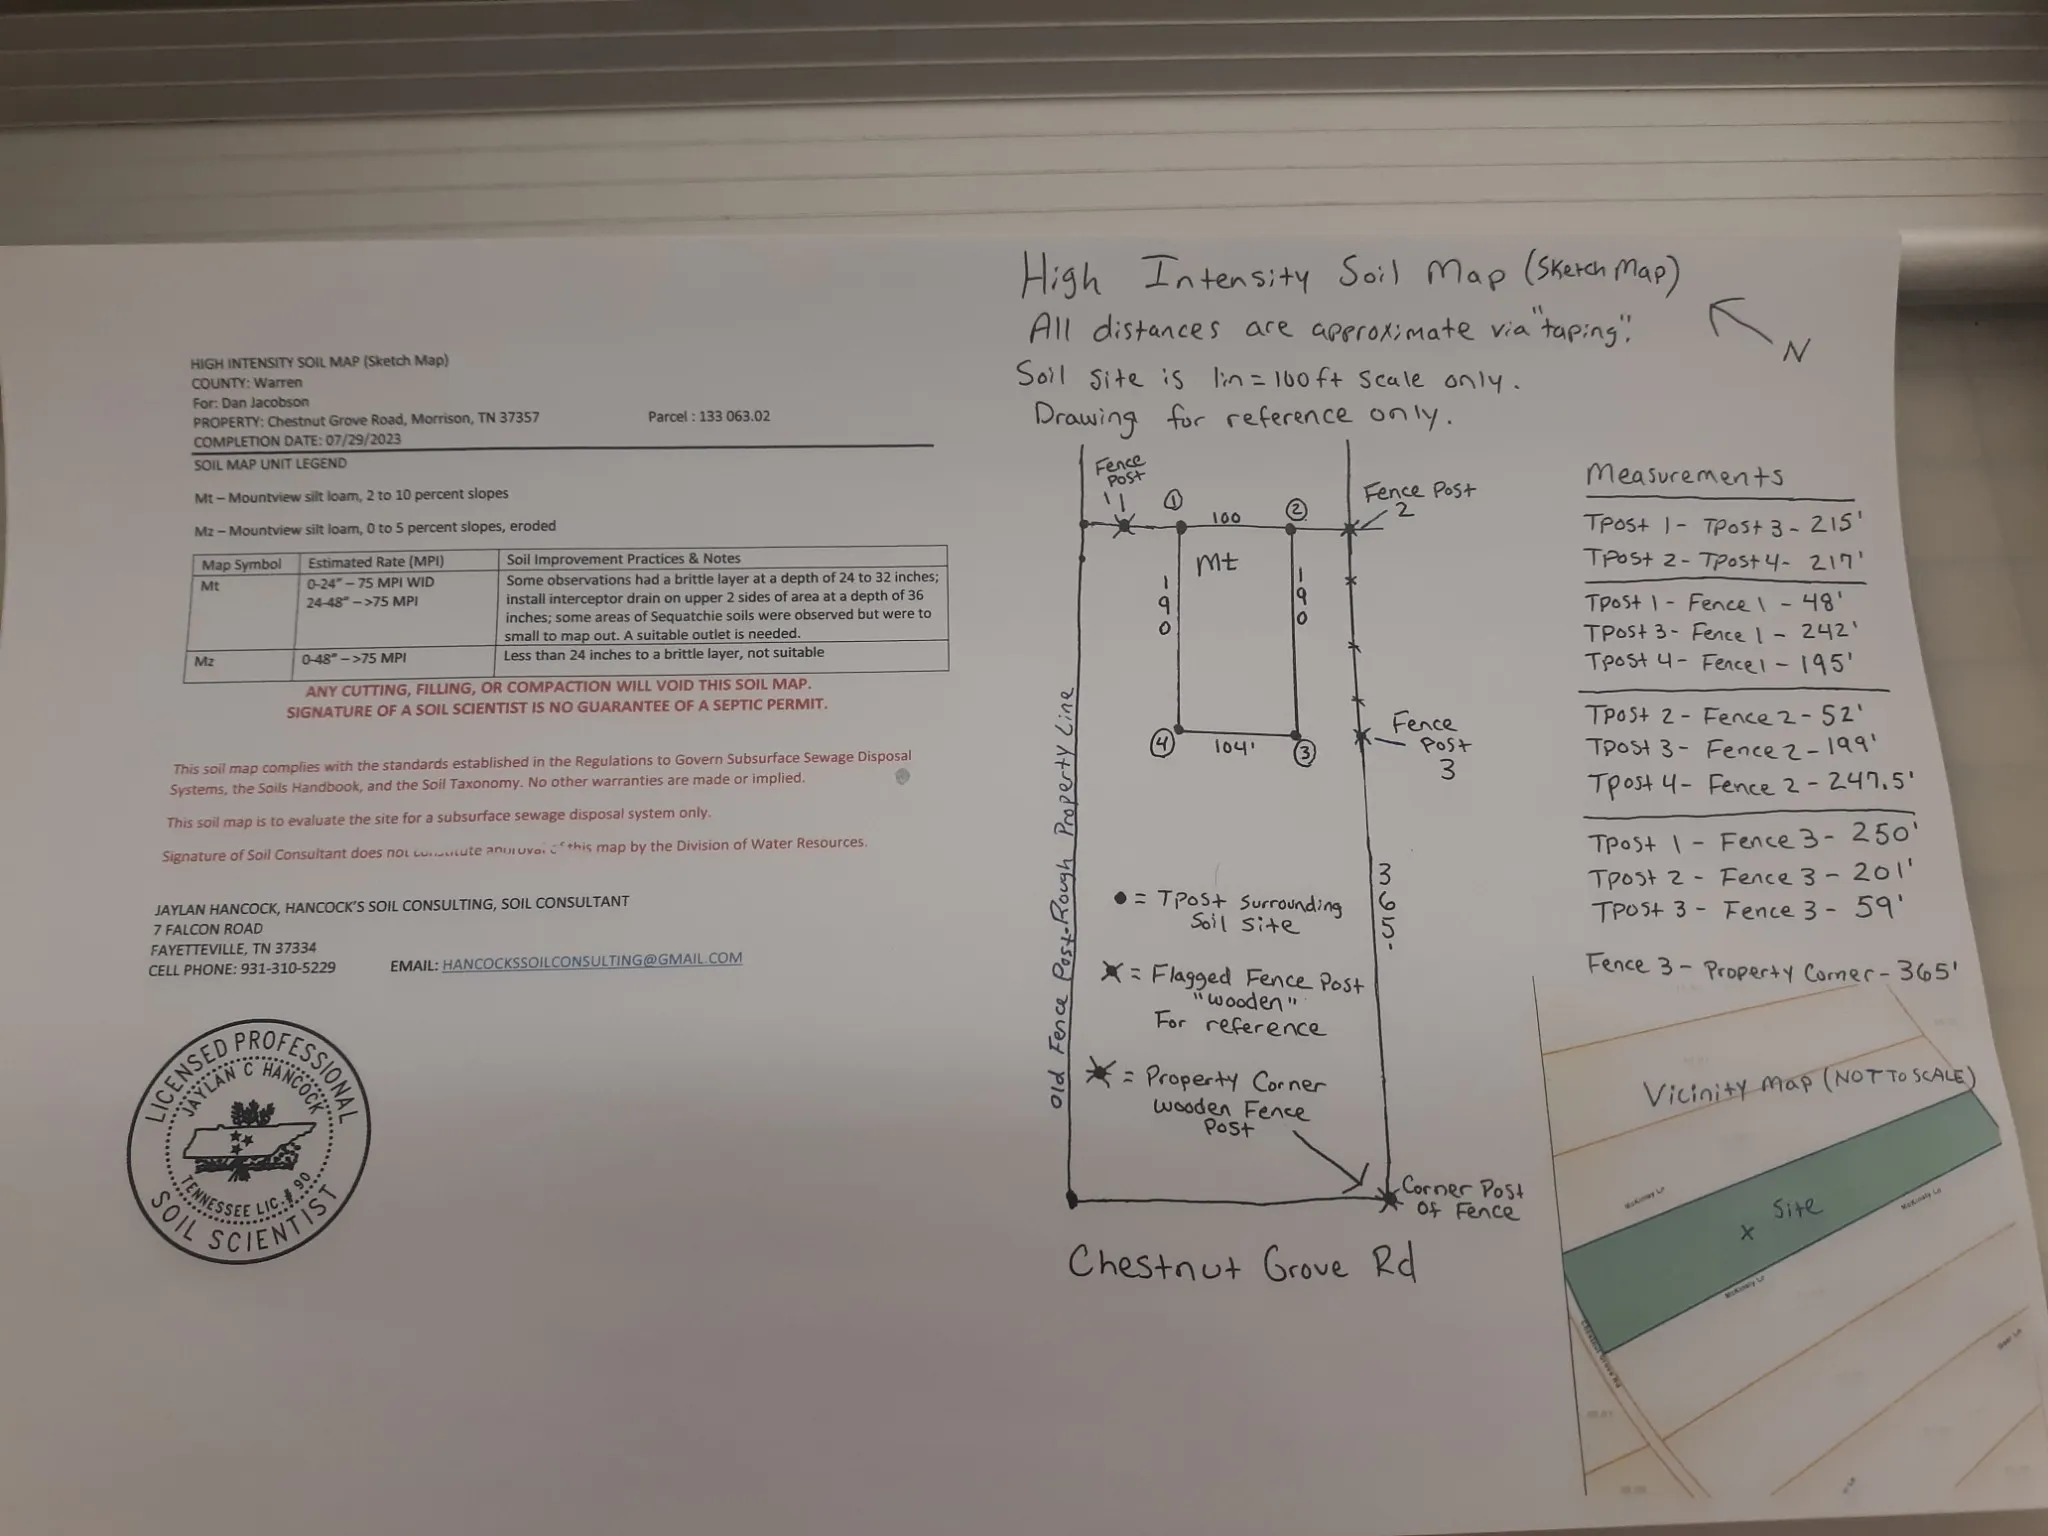 HIGH INTENSITY SOIL MAP (Sketch Map)
COUNTY: Warren
For: Dan Jacobson
PROPERTY: Chestnut Grove Road, Morrison, TN 37357 Parcel : 133 063.02
COMPLETION DATE: 07/29/2023
SOIL MAP UNIT LEGEND
Mt – Mountview silt loam, 2 to 10 percent slopes
Mz – Mountview silt loam, 0 to 5 percent slopes, eroded
Map Symbol Estimated Rate (MPI) Soil Improvement Practices & Notes
Mt 0-24" – 75 MPI WID Some observations had a brittle layer at a depth of 24 to 32 inches;
24-48" – >75 MPI install interceptor drain on upper 2 sides of area at a depth of 36
inches; some areas of Sequatchie soils were observed but were to
small to map out. A suitable outlet is needed.
Mz 0-48" – >75 MPI Less than 24 inches to a brittle layer, not suitable
ANY CUTTING, FILLING, OR COMPACTION WILL VOID THIS SOIL MAP.
SIGNATURE OF A SOIL SCIENTIST IS NO GUARANTEE OF A SEPTIC PERMIT.
This soil map complies with the standards established in the Regulations to Govern Subsurface Sewage Disposal
Systems, the Soils Handbook, and the Soil Taxonomy. No other warranties are made or implied.
This soil map is to evaluate the site for a subsurface sewage disposal system only.
Signature of Soil Consultant does not constitute approval of this map by the Division of Water Resources.
JAYLAN HANCOCK, HANCOCK'S SOIL CONSULTING, SOIL CONSULTANT
7 FALCON ROAD
FAYETTEVILLE, TN 37334
CELL PHONE: 931-310-5229 EMAIL: HANCOCKSSOILCONSULTING@GMAIL.COM
LICENSED PROFESSIONAL
JAYLAN C HANCOCK
TENNESSEE LIC.# 90
SOIL SCIENTIST
High Intensity Soil Map (Sketch Map)
All distances are approximate via "taping".
N
Soil site is 1in = 100ft scale only.
Drawing for reference only.
Fence
Post
1
1
100
2
Fence Post
2
Mt
190
190
4
104'
3
Fence
Post
3
Old Fence Post-Rough Property Line
365'
= TPost Surrounding
Soil Site
= Flagged Fence Post
"wooden"
For reference
= Property Corner
wooden Fence
Post
Corner Post
Of Fence
Chestnut Grove Rd
Measurements
TPost 1 - TPost 3 - 215'
TPost 2 - TPost 4 - 217'
TPost 1 - Fence 1 - 48'
TPost 3 - Fence 1 - 242'
TPost 4 - Fence 1 - 195'
TPost 2 - Fence 2 - 52'
TPost 3 - Fence 2 - 199'
TPost 4 - Fence 2 - 247.5'
TPost 1 - Fence 3 - 250'
TPost 2 - Fence 3 - 201'
TPost 3 - Fence 3 - 59'
Fence 3 - Property Corner - 365'
Vicinity Map (NOT TO SCALE)
McKinley Ln
X Site
McKinley Ln
McKinley Ln
Chestnut Grove Rd